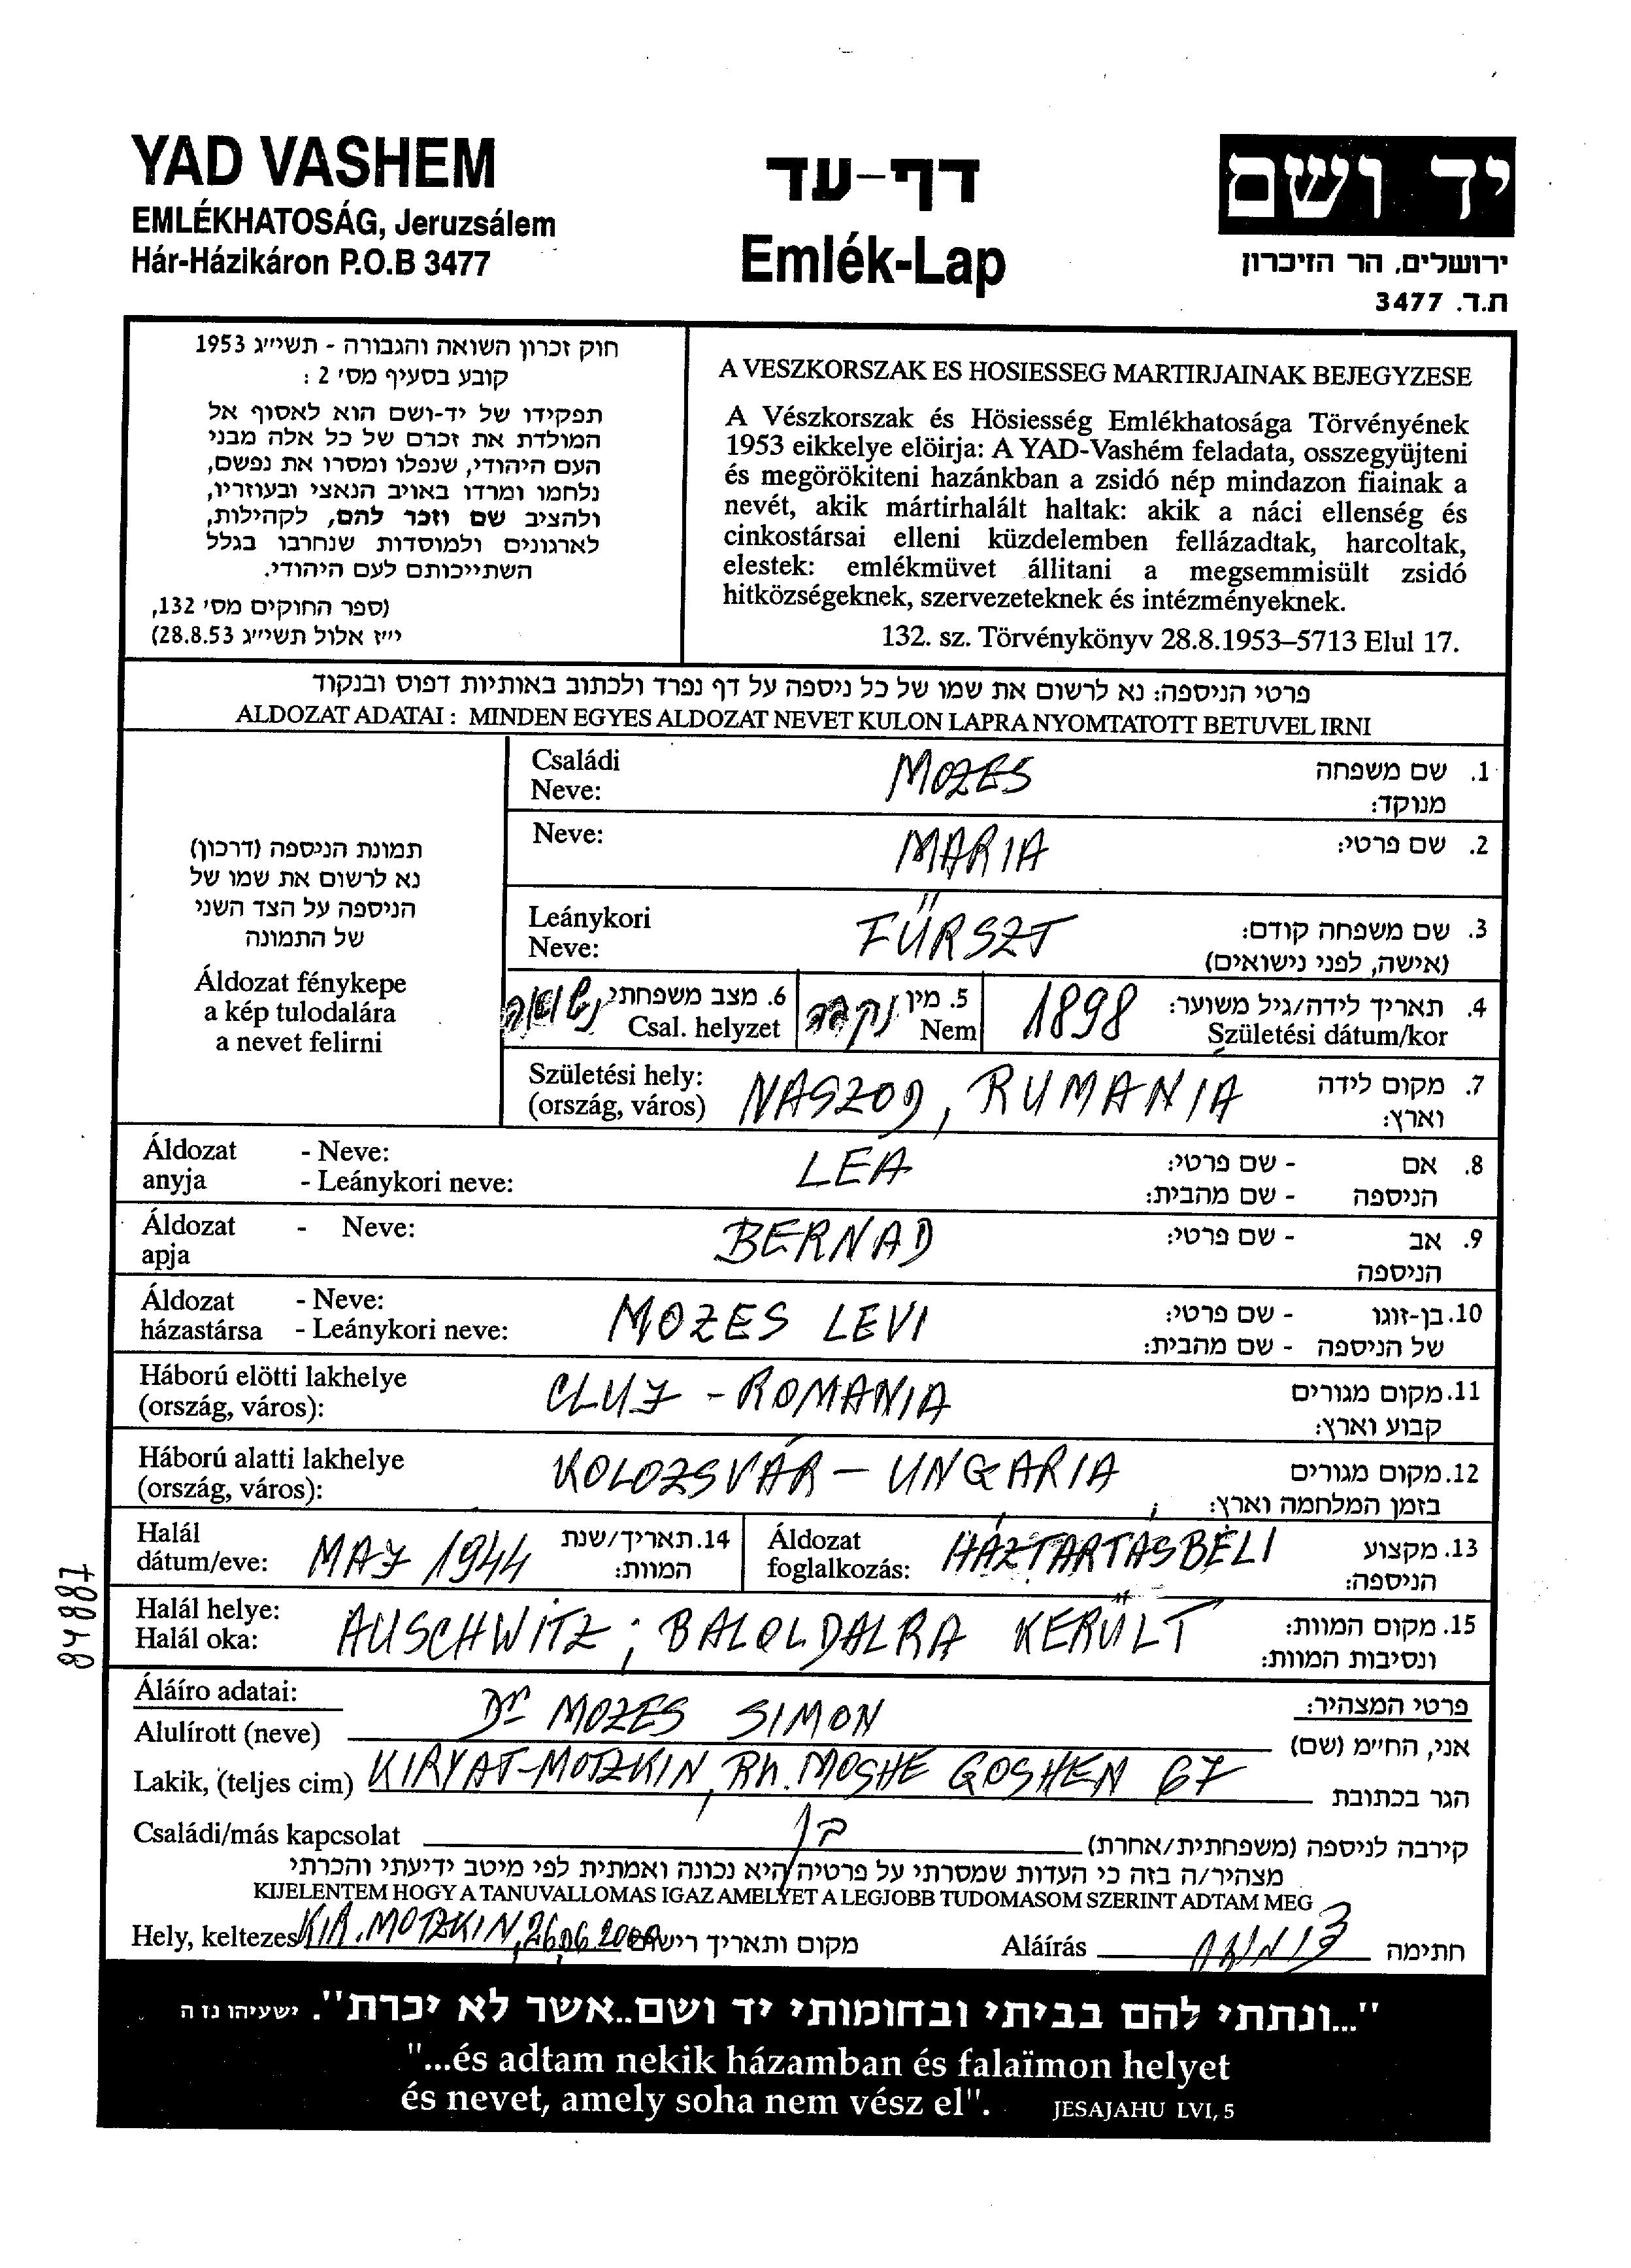 YAD VASHEM
EMLÉKHATOSÁG, Jeruzsálem
Hár-Házikáron P.O.B 3477
דף-עד
Emlék-Lap
יד ושם
ירושלים, הר הזיכרון
ת.ד. 3477
חוק זכרון השואה והגבורה - תשי״ג 1953
קובע בסעיף מס׳ 2 :
תפקידו של יד-ושם הוא לאסוף אל
המולדת את זכרם של כל אלה מבני
העם היהודי, שנפלו ומסרו את נפשם,
נלחמו ומרדו באויב הנאצי ובעוזריו,
ולהציב שם וזכר להם, לקהילות,
לארגונים ולמוסדות שנחרבו בגלל
השתייכותם לעם היהודי.
(ספר החוקים מס׳ 132,
י״ז אלול תשי״ג 28.8.53)
A VESZKORSZAK ES HOSIESSEG MARTIRJAINAK BEJEGYZESE
A Vészkorszak és Hösiesség Emlékhatosága Törvényének
1953 eikkelye elöirja: A YAD-Vashém feladata, osszegyüjteni
és megörökiteni hazánkban a zsidó nép mindazon fiainak a
nevét, akik mártirhalált haltak: akik a náci ellenség és
cinkostársai elleni küzdelemben fellázadtak, harcoltak,
elestek: emlékmüvet állitani a megsemmisült zsidó
hitközségeknek, szervezeteknek és intézményeknek.
132. sz. Törvénykönyv 28.8.1953–5713 Elul 17.
פרטי הניספה: נא לרשום את שמו של כל ניספה על דף נפרד ולכתוב באותיות דפוס ובנקוד
ALDOZAT ADATAI : MINDEN EGYES ALDOZAT NEVET KULON LAPRA NYOMTATOTT BETUVEL IRNI
תמונת הניספה (דרכון)
נא לרשום את שמו של
הניספה על הצד השני
של התמונה
Áldozat fénykepe
a kép tulodalára
a nevet felirni
Családi Neve: MOZES 1. שם משפחה מנוקד:
Neve: MARIA 2. שם פרטי:
Leánykori Neve: FÜRSZT 3. שם משפחה קודם: (אישה, לפני נישואים)
נשואה 6. מצב משפחתי Csal. helyzet נקבה 5. מין Nem 1898 4. תאריך לידה/גיל משוער: Születési dátum/kor
Születési hely: (ország, város) NASZOD, RUMANIA 7. מקום לידה וארץ:
Áldozat anyja - Neve: - Leánykori neve: LEA 8. אם הניספה - שם פרטי: - שם מהבית:
Áldozat apja - Neve: BERNAD 9. אב הניספה - שם פרטי:
Áldozat házastársa - Neve: - Leánykori neve: MOZES LEVI 10. בן-זוגו של הניספה - שם פרטי: - שם מהבית:
Háború elötti lakhelye (ország, város): CLUJ - ROMANIA 11. מקום מגורים קבוע וארץ:
Háború alatti lakhelye (ország, város): KOLOZSVÁR - UNGARIA 12. מקום מגורים בזמן המלחמה וארץ:
Halál dátum/eve: MAJ 1944 14. תאריך/שנת המוות: Áldozat foglalkozás: HÁZTARTÁSBÉLI 13. מקצוע הניספה:
Halál helye: Halál oka: AUSCHWITZ; BALOLDALRA KERÜLT 15. מקום המוות: ונסיבות המוות:
84887
Áláíro adatai: פרטי המצהיר:
Alulírott (neve) Dr MOZES SIMON אני, החי״מ (שם)
Lakik, (teljes cim) KIRYAT-MOTZKIN, Rh. MOSHE GOSHEN 67 הגר בכתובת
Családi/más kapcsolat בן קירבה לניספה (משפחתית/אחרת)
מצהיר/ה בזה כי העדות שמסרתי על פרטיה היא נכונה ואמתית לפי מיטב ידיעתי והכרתי
KIJELENTEM HOGY A TANUVALLOMAS IGAZ AMELYET A LEGJOBB TUDOMASOM SZERINT ADTAM MEG
Hely, keltezes KIR. MOTZKIN, 26.06.2000 מקום ותאריך רישום Aláírás חתימה
"...ונתתי להם בביתי ובחומותי יד ושם..אשר לא יכרת". ישעיהו נז ה
"...és adtam nekik házamban és falaïmon helyet
és nevet, amely soha nem vész el". JESAJAHU LVI, 5